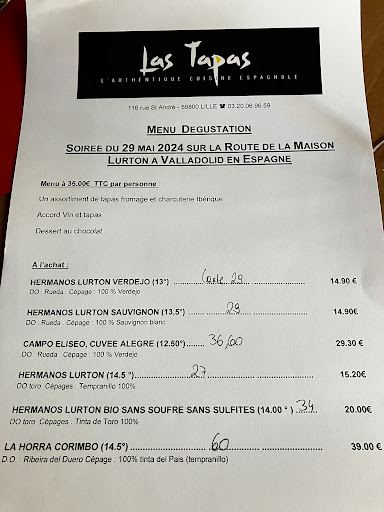 Las Tapas
L'AUTHENTIQUE CUISINE ESPAGNOLE
116 rue St André - 59800 LILLE ☎ 03.20.06.96.59
MENU DEGUSTATION
SOIREE DU 29 MAI 2024 SUR LA ROUTE DE LA MAISON
LURTON A VALLADOLID EN ESPAGNE
Menu à 35.00€ TTC par personne :
Un assortiment de tapas fromage et charcuterie Ibérique
Accord Vin et tapas
Dessert au chocolat
A l'achat :
HERMANOS LURTON VERDEJO (13°) ......Carte 29...... 14.90 €
DO : Rueda : Cépage : 100 % Verdejo
HERMANOS LURTON SAUVIGNON (13,5°) ......29...... 14.90€
DO : Rueda : Cépage : 100 % Sauvignon blanc
CAMPO ELISEO, CUVEE ALEGRE (12.50°)......36,00...... 29.30 €
DO : Rueda : Cépage : 100% Verdejo
HERMANOS LURTON (14.5 °)......27...... 15.20€
DO toro Cépages : Tempranillo 100%
HERMANOS LURTON BIO SANS SOUFRE SANS SULFITES (14.00 ° ) ...34 20.00€
DO toro Cépages : Tinta de Toro 100%
LA HORRA CORIMBO (14.5°)......60...... 39.00 €
D.O. : Ribeira del Duero Cépage : 100% tinta del Pais (tempranillo)